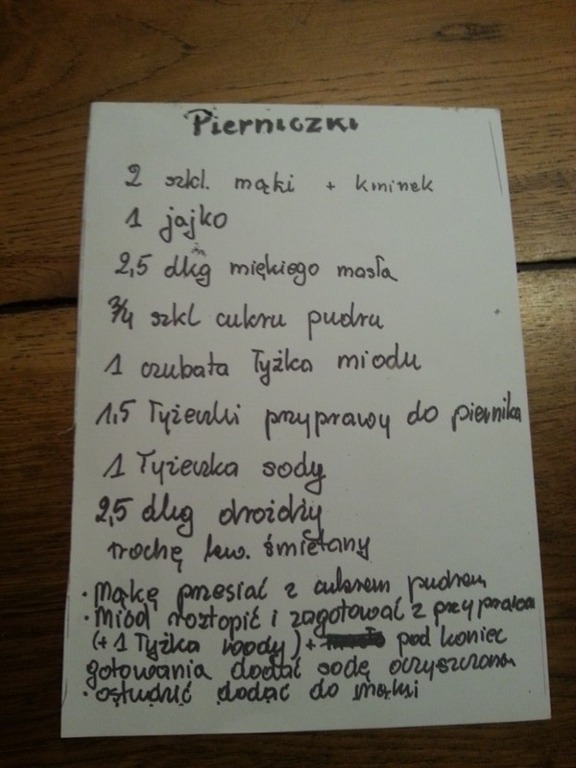 Pierniczki
2 szkl. mąki + kminek
1 jajko
2,5 dkg miękiego masła
3/4 szkl cukru pudru
1 czubata łyżka miodu
1,5 łyżeczki przyprawy do piernika
1 łyżeczka sody
2,5 dkg drożdży
trochę kw. śmietany
• Mąkę przesiać z cukrem pudrem
• Miód roztopić i zagotować z przyprawą
(+ 1 łyżka wody) + pod koniec
gotowania dodać sodę oczyszczoną
• ostudzić dodać do mąki